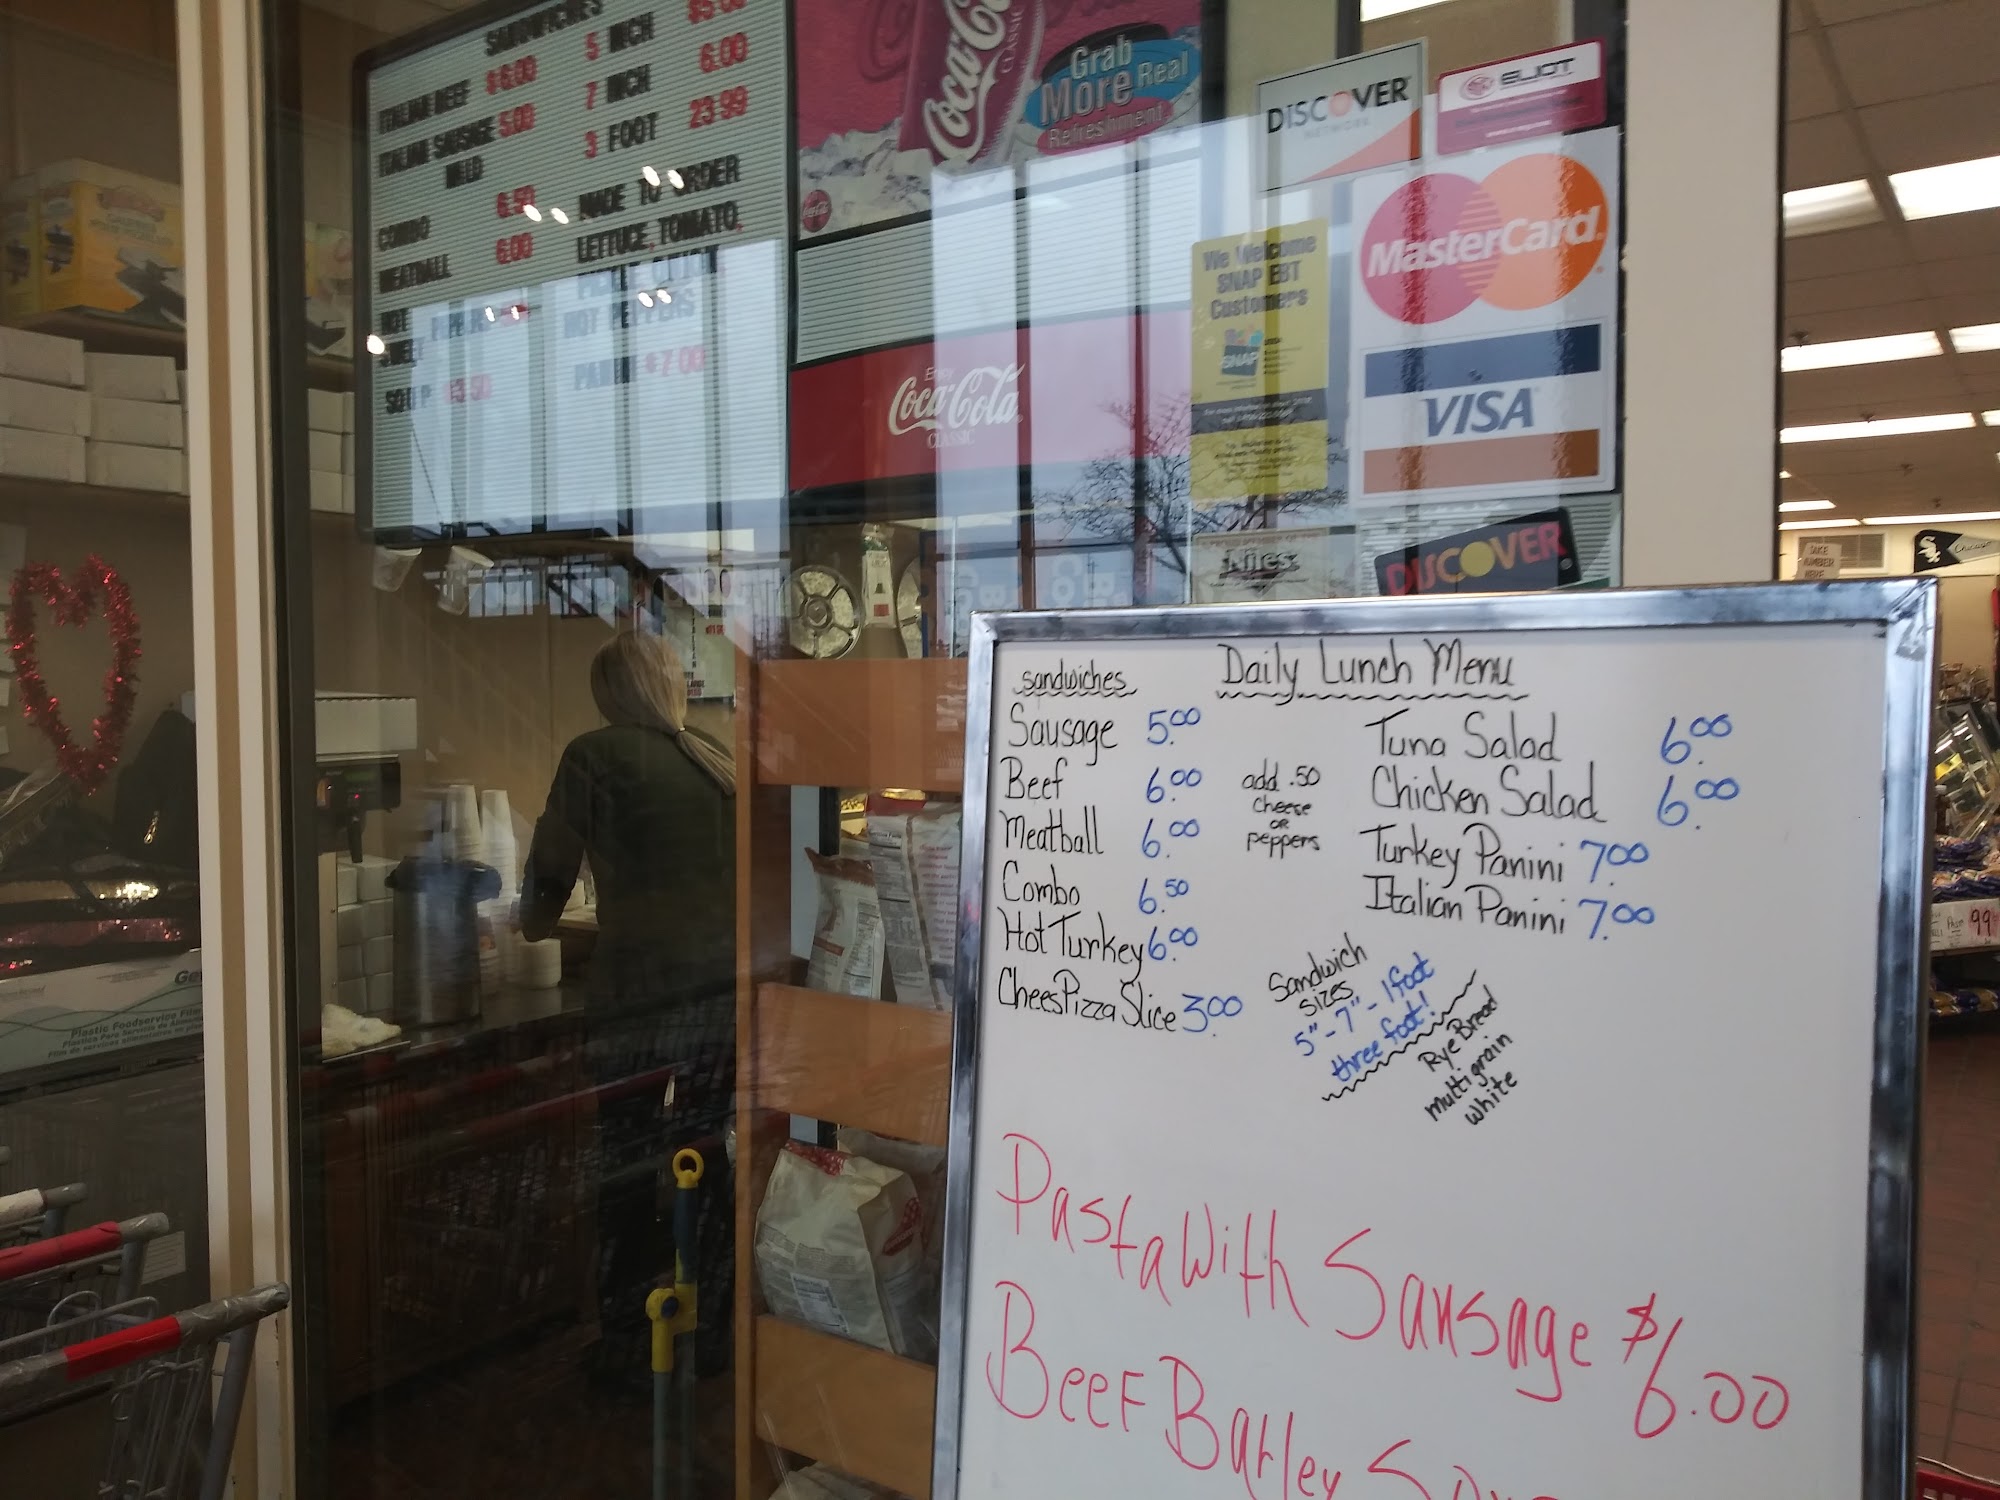 SANDWICHES
ITALIAN BEEF $6.00
ITALIAN SAUSAGE 5.00
MILD
COMBO 6.50
MEATBALL 6.00
HOT
PEPPERS
SOUP $3.50
5 INCH $5.00
7 INCH 6.00
3 FOOT 23.99
MADE TO ORDER
LETTUCE, TOMATO,
PICKLE ONION
HOT PEPPERS
PANINI $7.00
Coca-Cola
CLASSIC
Grab
More Real
Refreshment
Enjoy
Coca-Cola
CLASSIC
DISCOVER
NETWORK
ELIOT
We Welcome
SNAP EBT
Customers
SNAP
MasterCard
VISA
Niles
DISCOVER
TAKE
NUMBER
HERE
Chicago
99
Plastic Foodservice Film
Daily Lunch Menu
sandwiches
Sausage 5.00
Beef 6.00
Meatball 6.00
Combo 6.50
Hot Turkey 6.00
Chees Pizza Slice 3.00
add .50
cheese
or
peppers
Tuna Salad 6.00
Chicken Salad 6.00
Turkey Panini 7.00
Italian Panini 7.00
Sandwich
sizes
5" - 7" - 1 foot
three foot!
Rye Bread
multigrain
white
Pasta With Sausage $6.00
Beef Barley